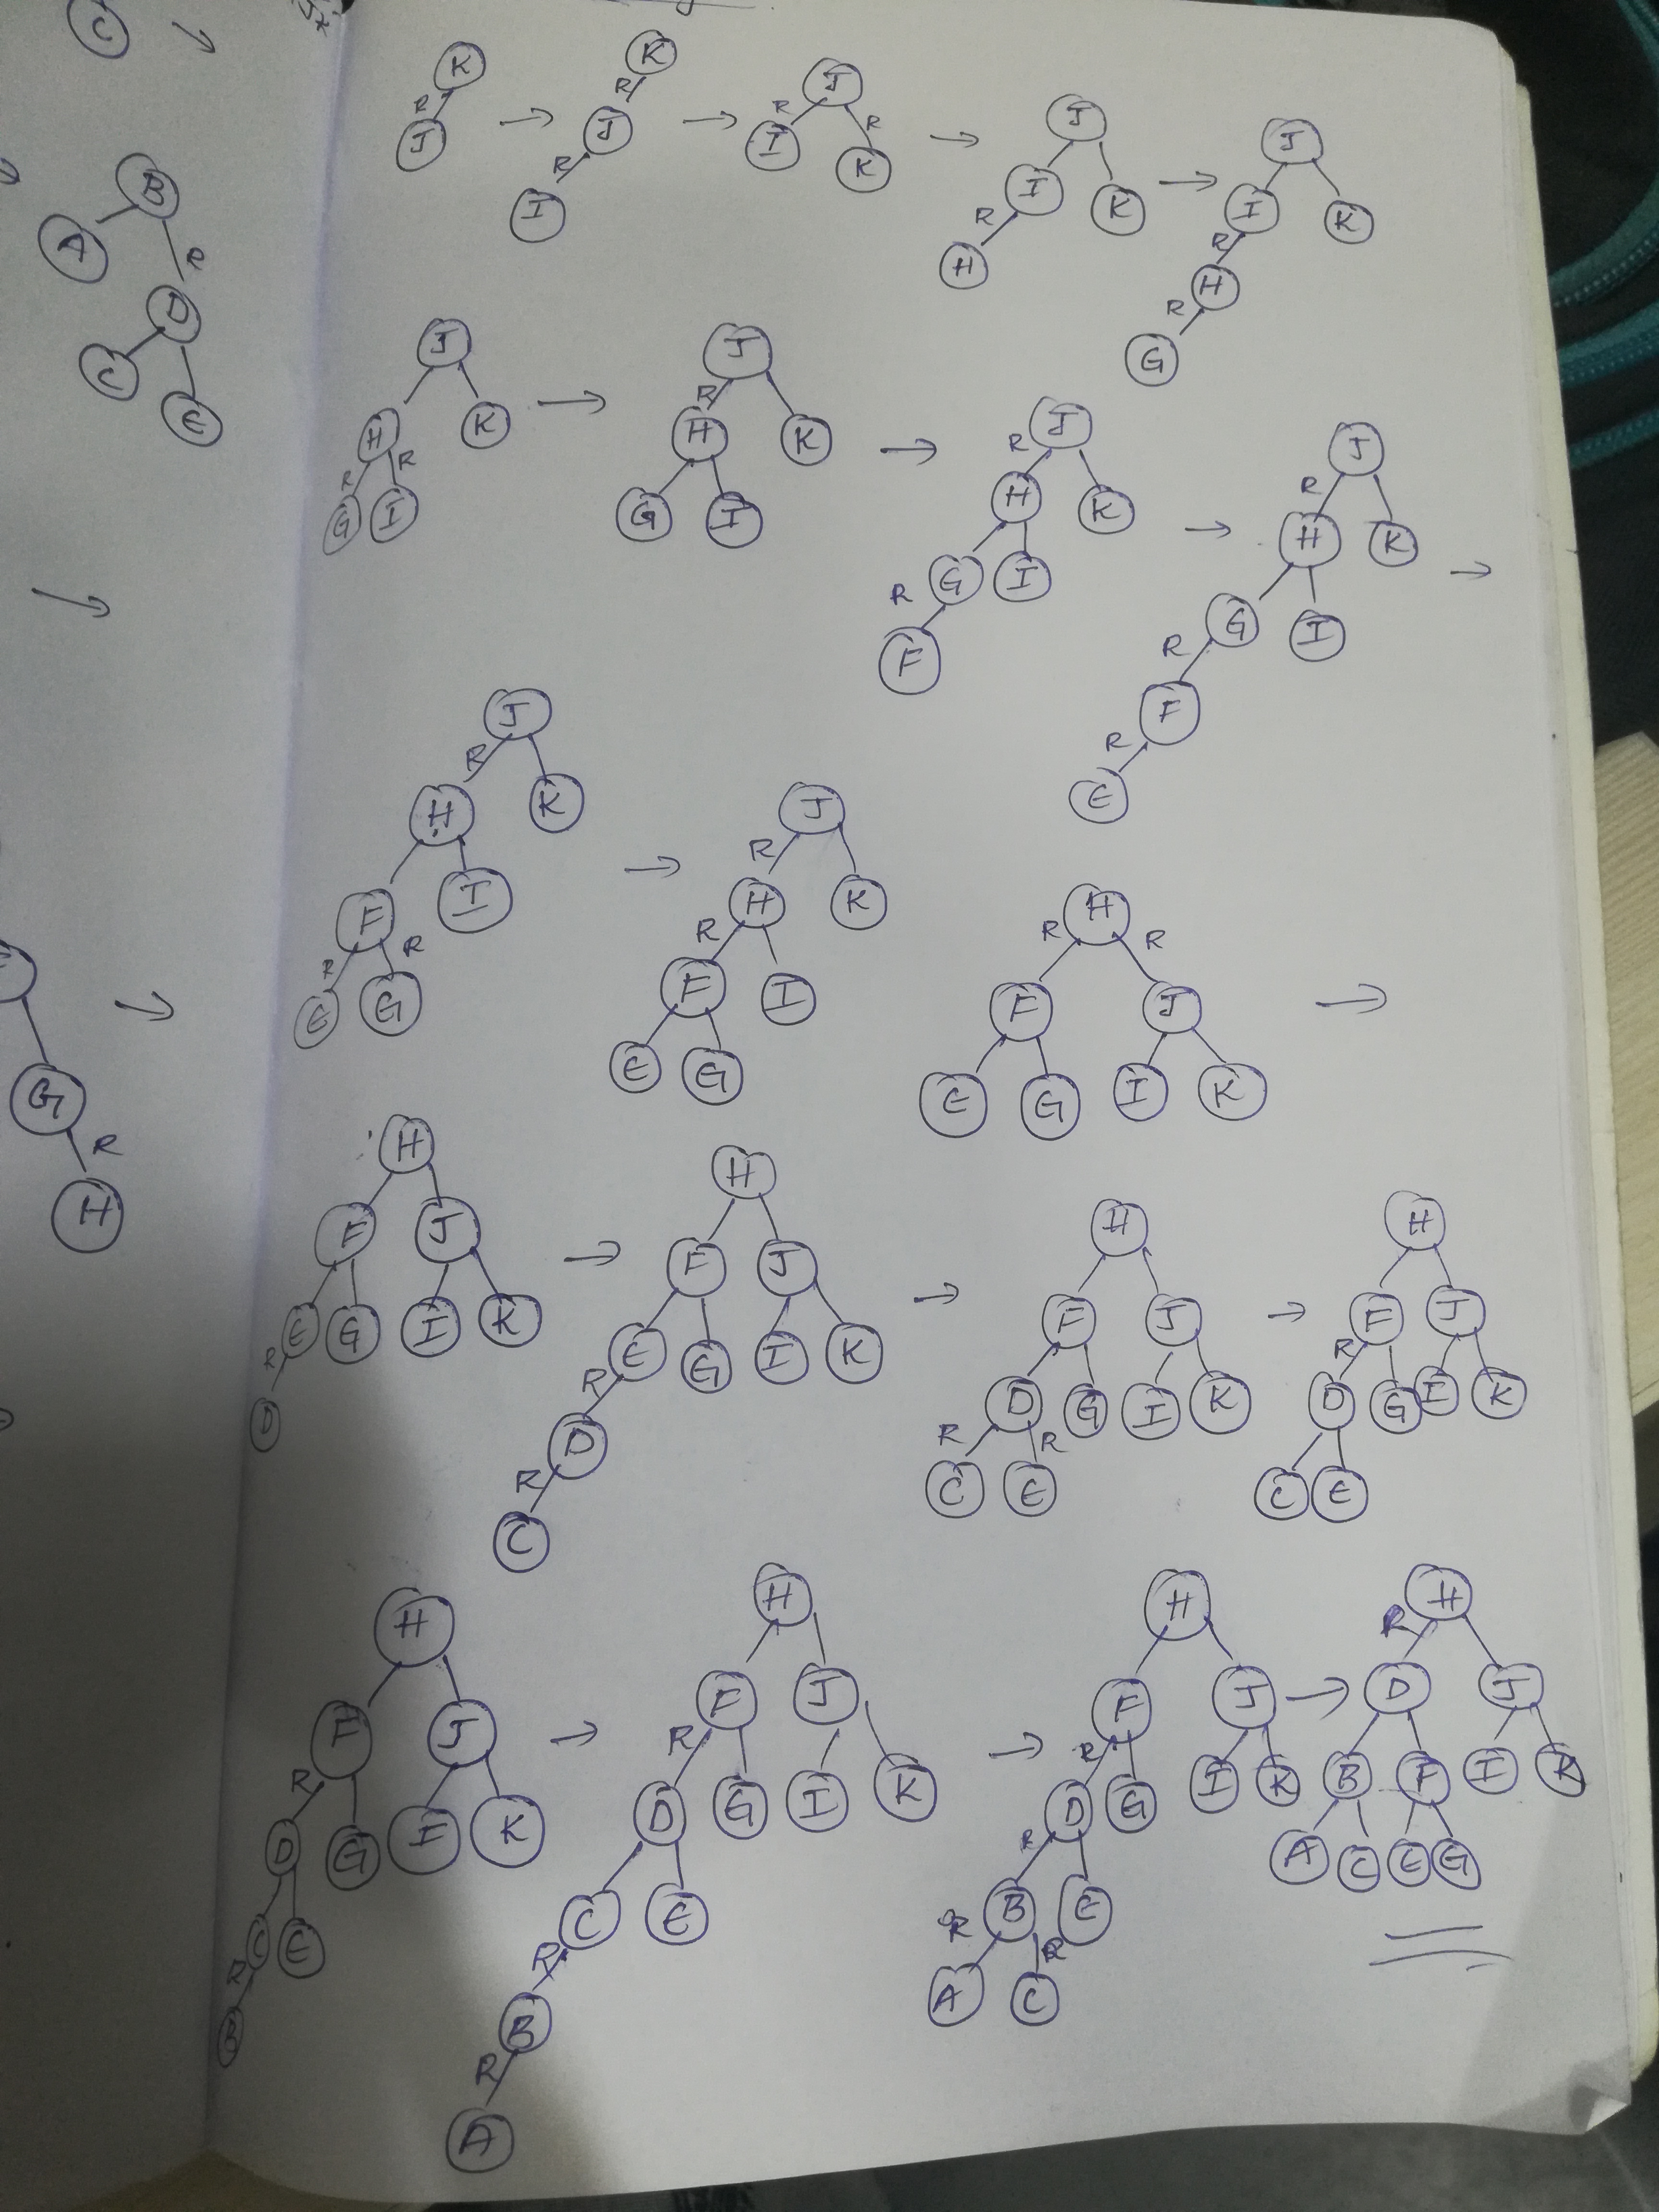 C
K
R
J
→
K
R
J
R
I
→
J
R R
I K
→
J
I K
R
H
→
J
I K
R
H
R
G
B
A R
D
C E
J
H K
R R
G I
→
J
R
H K
G I
→
J
R
H K
G I
R
F
→
J
R
H K
G I
R
F
R
E
→
→
J
R
H K
F I
R R
E G
→
J
R
H K
R
F I
E G
H
R R
F J
E G I K
→
→
G
R
H
H
F J
E G I K
R
D
→
H
F J
E G I K
R
D
R
C
→
H
F J
D G I K
R R
C E
→
H
F J
R
D G I K
C E
H
F J
R
D G I K
C E
R
B
→
H
F J
R
D G I K
C E
R
B
R
A
→
H
F J
R
D G I K
R
B E
R R
A C
→
H
R
D J
B F I K
A C E G